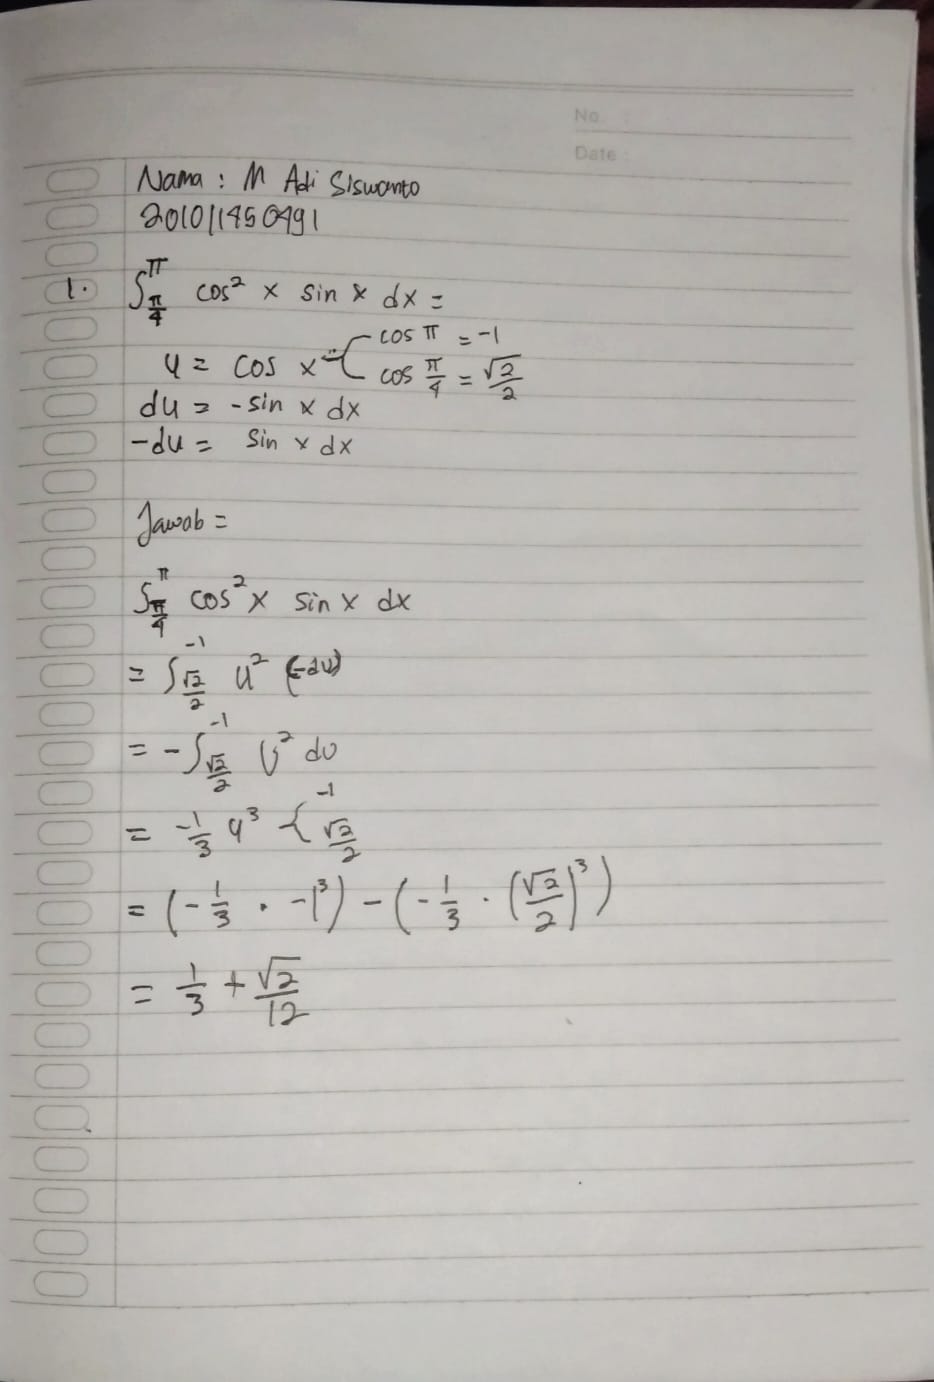 No. :
Date :
Nama : M Adi Siswanto
201011450491
1. ∫_{π/4}^{π} cos² x sin x dx =
u = cos x { cos π = -1
cos π/4 = √2/2
du = - sin x dx
-du = sin x dx
Jawab =
∫_{π/4}^{π} cos² x sin x dx
= ∫_{√2/2}^{-1} u² (-du)
= - ∫_{√2/2}^{-1} u² du
= -1/3 u³ { _{√2/2}^{-1}
= (- 1/3 · -1³) - (- 1/3 · (√2/2)³)
= 1/3 + √2/12